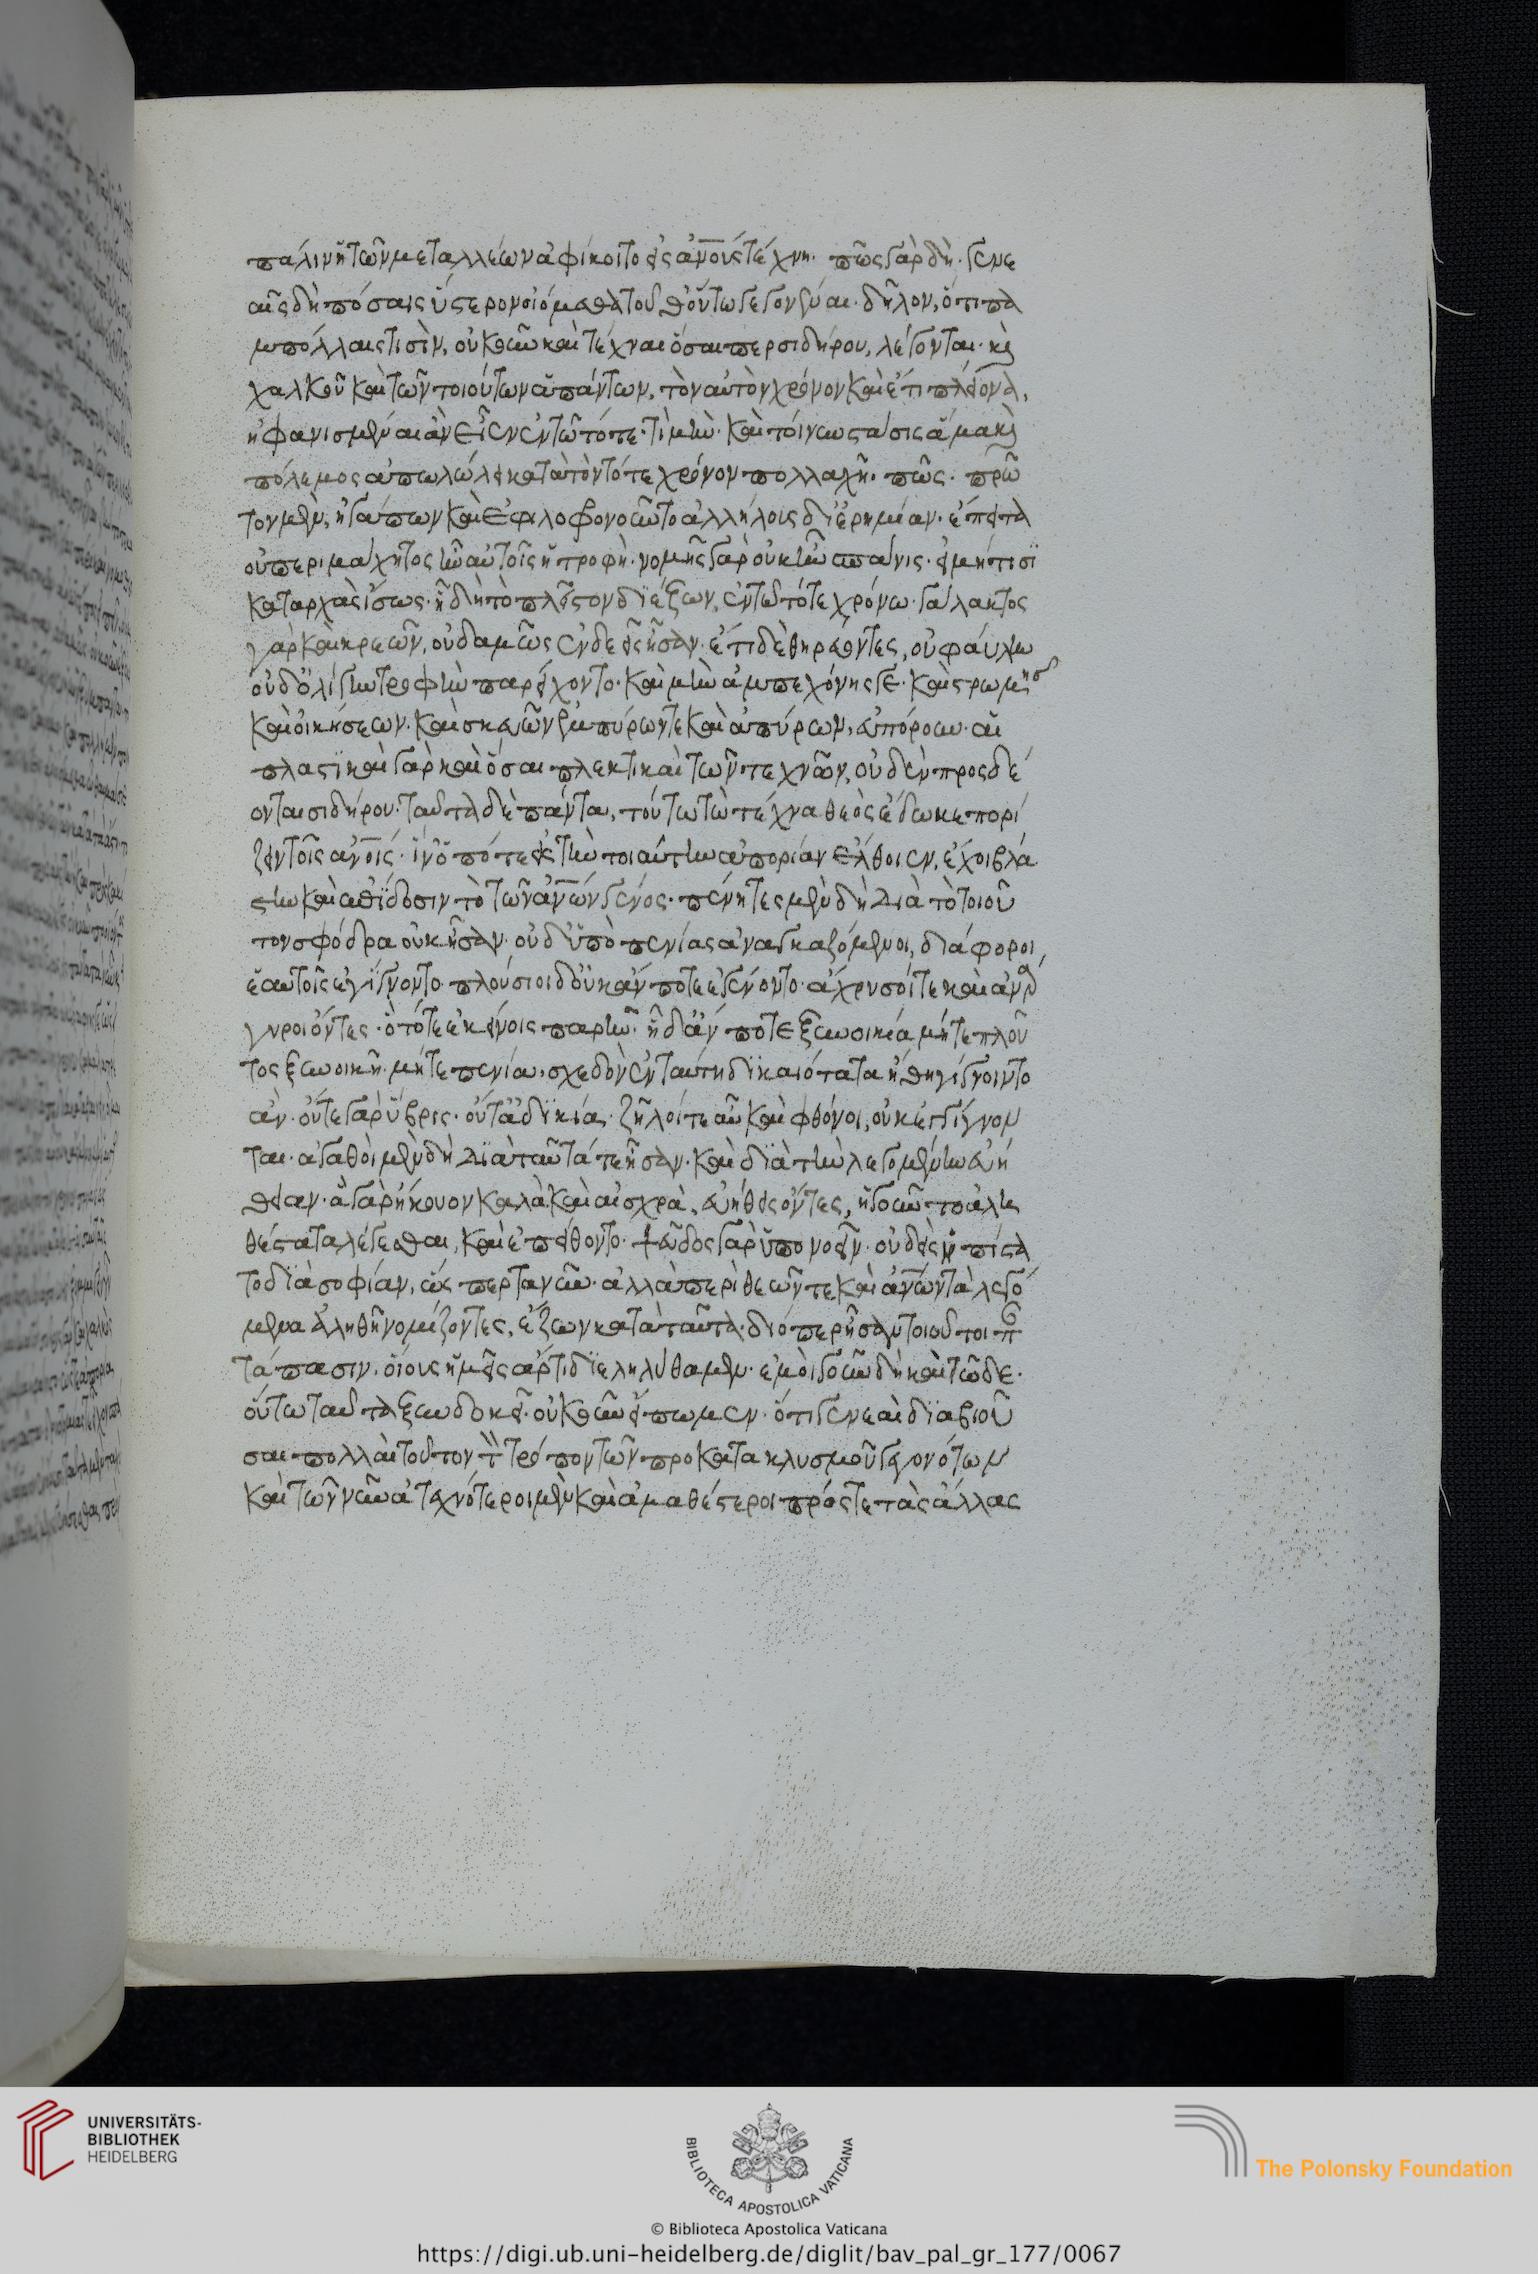 πάλιν ἡ τῶν μεταλλέων ἀφίκοιτο εἰς ἀν̅ους τέχνη· πῶς γὰρ δή· γενε
αῖς δὴ πόσαις ὕστερον οἰόμεθα τοῦθ' οὕτω γεγονέναι· δῆλον, ὅτι πα
μπόλλαις τισίν, οὐκοῦν καὶ τέχναι ὅσαι περ σιδήρου, λέγονται· κ̀
χαλκοῦ καὶ τῶν τοιούτων ἁπάντων, τὸν αὐτὸν χρόνον καὶ ἔτι πλείονα,
ἠφανισμέναι ἂν εἶεν ἐν τῶ τότε· τὶ μήν· καὶ τοίνυν στάσις ἅμα κ̀
πόλεμος ἀπωλώλει κατὰ τὸν τότε χρόνον πολλαχῆ· πῶς· πρῶ
τον μὲν, ἠγάπων καὶ ἐφιλοφρονοῦντο ἀλλήλοις δι' ἐρημίαν· ἔπειτα
οὐ περιμάχητος ἦν αὐτοῖς ἡ τροφὴ· νομῆς γὰρ οὐκ ἦν σπάνις· εἰ μή τισϊ
καταρχὰς ἴσως· ἧ δὴ τὸ πλεῖστον διέζων, ἐν τῶ τότε χρόνω· γάλακτος
γὰρ καὶ κρεῶν, οὐδαμῶς ἐνδεεῖς ἦσαν· ἔτι δὲ θηρεύοντες, οὐ φαύλην
οὐδ' ὀλίγην τροφὴν παρείχοντο· καὶ μὴν ἀμπεχόνης γε· καὶ στρωμνῆς
καὶ οἰκήσεων· καὶ σκευῶν ἐμπύρων τε καὶ ἀπύρων, εὐπόρουν· αἱ
πλαστικαὶ γὰρ καὶ ὅσαι πλεκτικαὶ τῶν τεχνῶν, οὐδὲν προσδέ
ονται σιδήρου· ταῦτα δὲ πάντα, τούτω τὼ τέχνα θεὸς ἔδωκε πορί
ζειν τοῖς ἀν̅οις· ἵν' ὁπότε εἰς τὴν τοιαύτην ἀπορίαν ἔλθοιεν, ἔχοι βλά
στην καὶ ἐπίδοσιν τὸ τῶν ἀν̅ων γένος· πένητες μὲν δὴ διὰ τὸ τοιοῦ
τον σφόδρα οὐκ ἦσαν· οὐδ' ὑπὸ πενίας ἀναγκαζόμενοι, διάφοροι
ἑαυτοῖς ἐγίγνοντο· πλούσιοι δ' οὐκ ἄν ποτε ἐγένοντο· ἄχρυσοί τε καὶ ἀνάρ
γυροι ὄντες· ὁπότε ἐκείνοις παρῆν· ἧ δ' ἄν ποτε ξυνοικία μήτε πλοῦ
τος ξυνοικῆ· μήτε πενία, σχεδὸν ἐν ταύτη δικαιότατα ἤθη γίγνοιντο
ἄν· οὔτε γὰρ ὕβρις· οὔτ' ἀδικία· ζῆλοί τε αὖ καὶ φθόνοι, οὐκ ἐγγίγνον
ται· ἀγαθοὶ μὲν δὴ διὰ ταῦτά τε ἦσαν· καὶ διὰ τὴν λεγομένην εὐή
θειαν· ἃ γὰρ ἤκουον καλὰ καὶ αἰσχρὰ, εὐήθεις ὄντες, ἡγοῦντο ἀλη
θέστατα λέγεσθαι, καὶ ἐπείθοντο· ψεῦδος γὰρ ὑπονοεῖν· οὐδεὶς ἠπίστα
το διὰ σοφίαν, ὥς περ τανῦν· ἀλλὰ περὶ θεῶν τε καὶ ἀν̅ων τὰ λεγό
μενα ἀληθῆ νομίζοντες, ἔζων κατὰ ταῦτα· διόπερ ἦσαν τοιοῦτοι π
τάπασιν· οἵους ἡμεῖς ἄρτι διεληλύθαμεν· ἐμοὶ γοῦν δὴ καὶ τῶδε·
οὕτω ταῦτα ξυνδοκεῖ· οὐκοῦν εἴπωμεν· ὅτι γενεαὶ διαβιοῦ
σαι πολλαὶ τοῦτον τ̀ τρόπον τῶν προ κατακλυσμοῦ γεγονότων
καὶ τῶν νῦν ἀτεχνότεροι μὲν καὶ ἀμαθέστεροι πρός τε τὰς ἄλλας
UNIVERSITÄTS-
BIBLIOTHEK
HEIDELBERG
BIBLIOTECA APOSTOLICA VATICANA
The Polonsky Foundation
© Biblioteca Apostolica Vaticana
https://digi.ub.uni-heidelberg.de/diglit/bav_pal_gr_177/0067